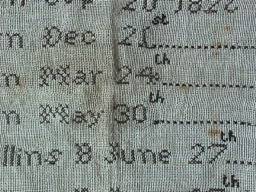 20 1822
n Dec 21st
n Mar 24th
n May 30th
llins B June 27th
th